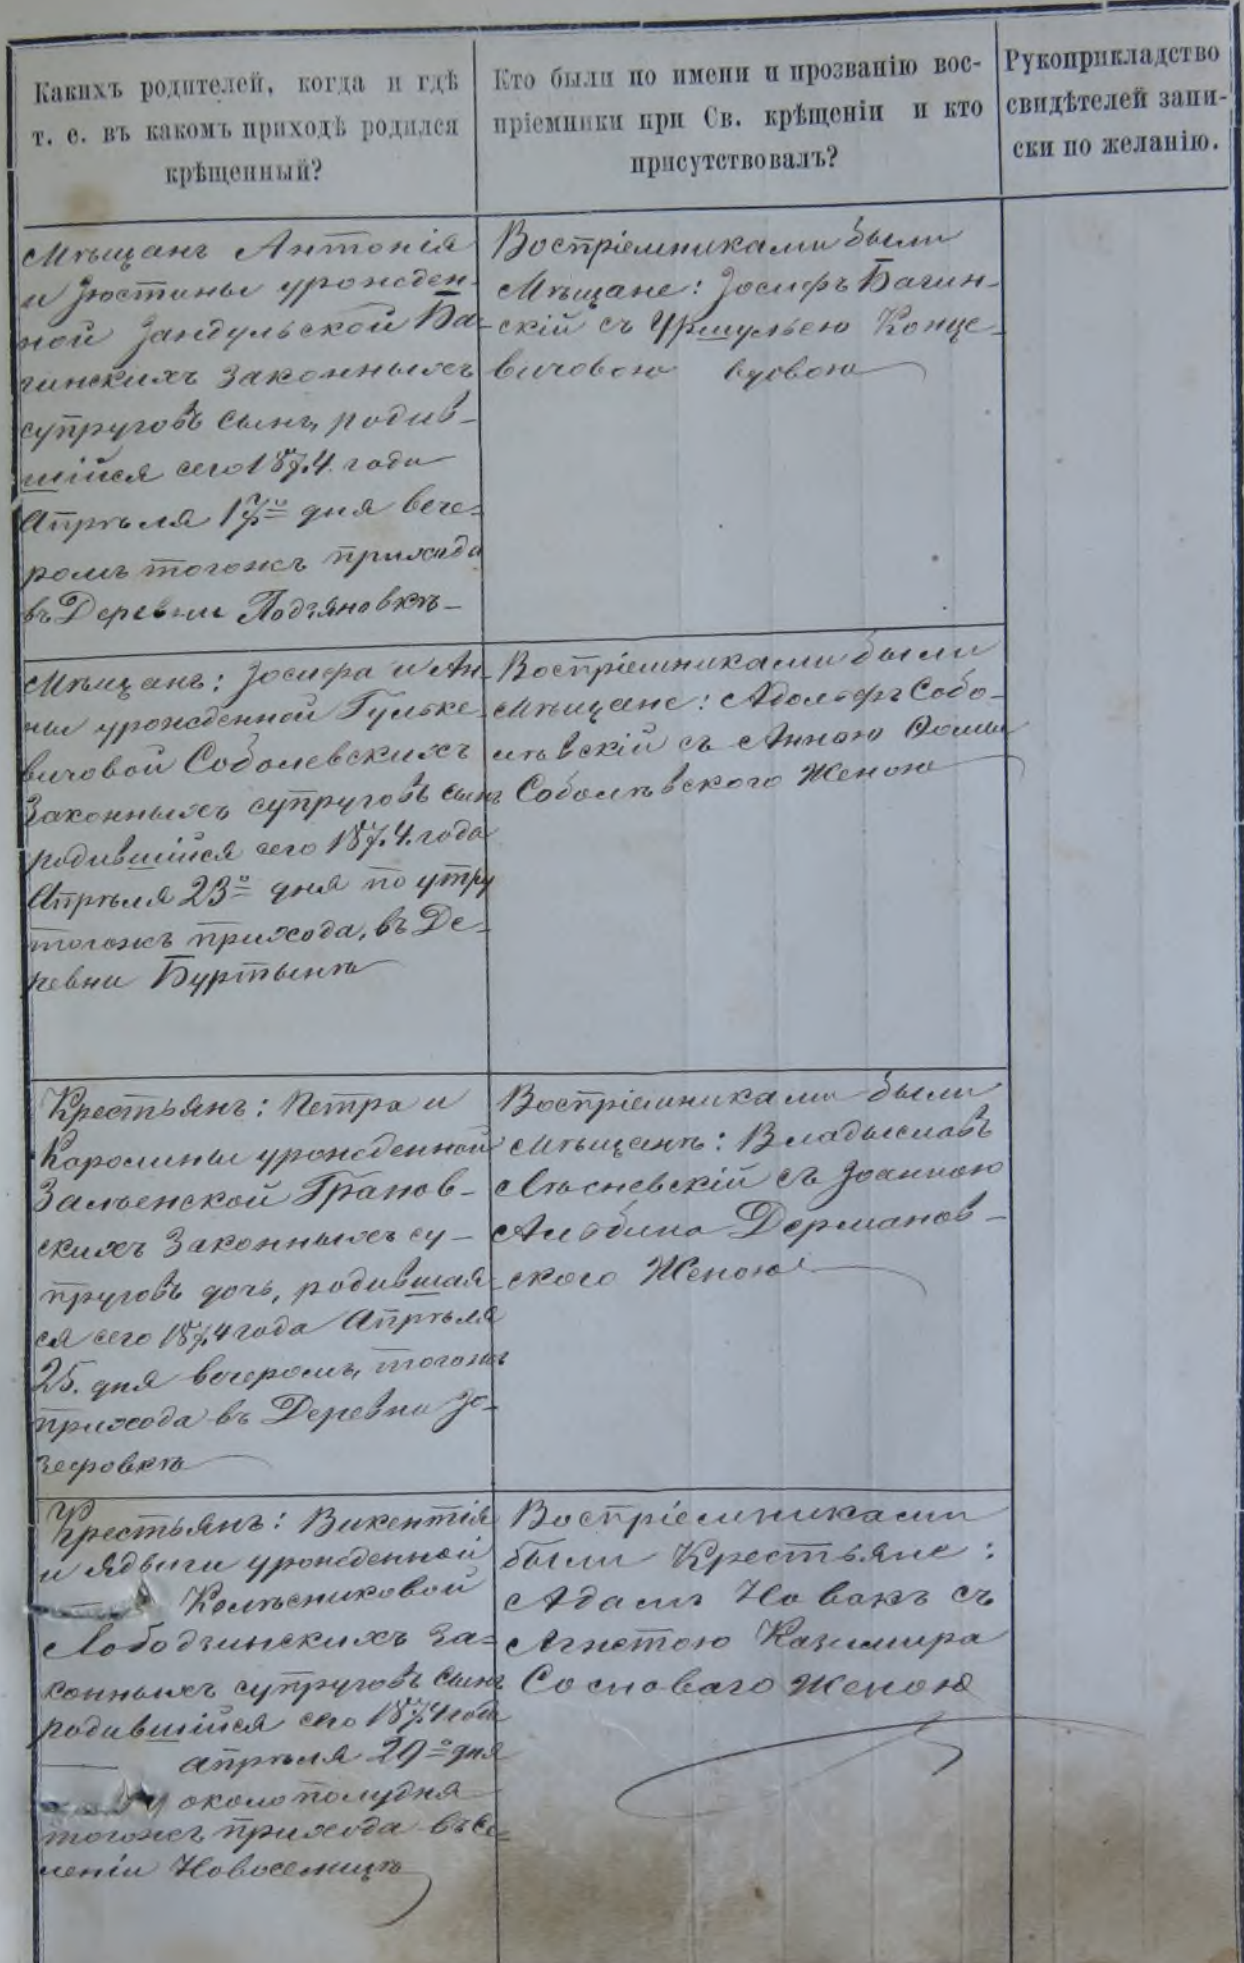 Какихъ родителей, когда и гдѣ
т. е. въ какомъ приходѣ родился
крѣщенный?
Кто были по имени и прозванію вос-
пріемники при Св. крѣщеніи и кто
присутствовалъ?
Рукоприкладство
свидѣтелей запи-
ски по желанію.
Мѣщанъ Антонія
и Іюстины урожден-
ной Зандульской Ба-
гинскихъ законныхъ
супруговъ сынъ, родив-
шійся сего 1874. года
Апрѣля 17о дня вече-
ромъ тогожъ прихода
въ Деревни Лодзяновкѣ
Воспріемниками были
Мѣщане: Іосифъ Багин-
скій съ Уршульею Конце-
вичовою вдовою
Мѣщанъ: Іосифа и Ан-
ны урожденной Гульке-
вичовой Соболевскихъ
Законныхъ супруговъ сынъ
родившійся сего 1874. года
Апрѣля 23о дня по утру
тогожъ прихода, въ Де-
ревни Буртынѣ
Воспріемниками были
Мѣщане: Адольфъ Собо-
лѣвскій съ Анною Фомы
Соболѣвского Женою
Крестьянъ: Петра и
Каролины урожденной
Залѣенской Гранов-
скихъ Законныхъ су-
пруговъ дочь, родившая-
ся сего 1874 года Апрѣля
25. дня вечеромъ, тогожъ
прихода въ Деревни Іо-
зефовкѣ
Воспріемниками были
Мѣщанѣ: Владыславъ
Лѣсневскій съ Іоанною
Альбина Дерманов-
ского Женою
Крестьянъ: Викентія
и Ядвиги урожденной
Колѣсниковой
Лободзинскихъ За-
конныхъ супруговъ сынъ
родившійся сего 1874 года
апрѣля 29о дня
около полудня
тогожъ прихода въ Се-
леніи Новоселицѣ
Воспріемниками
были Крестьяне:
Адамъ Новакъ съ
Агнетою Казимира
Сосноваго Женою